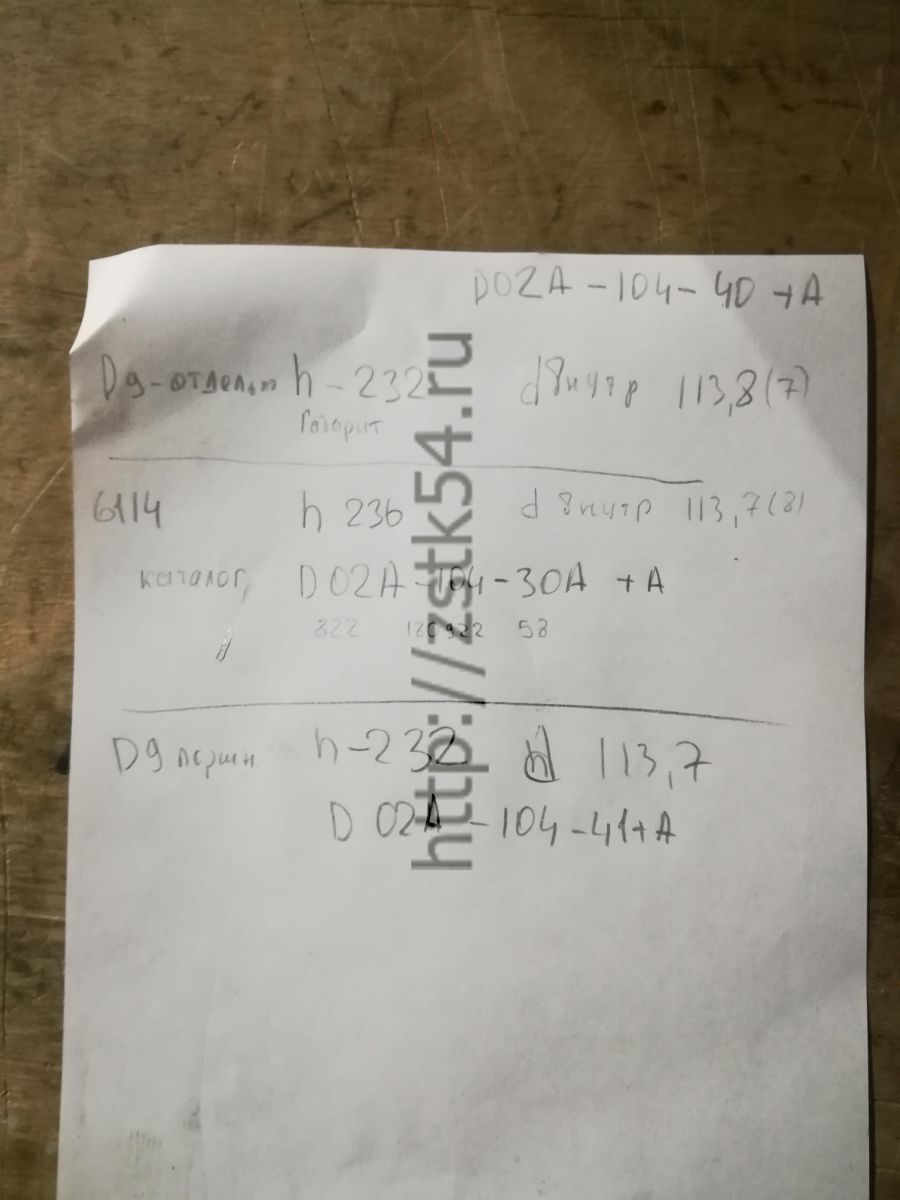 D02A - 104 - 40 + A
D9 - отдельн h - 232 d внутр 113,8(7)
Габарит
6114 h 236 d внутр 113,7(8)
каталог, D02A - 104 - 30A + A
322 120922 58
D9 поршн h - 232 d 113,7
D02A - 104 - 41 + A
http://zstk54.ru